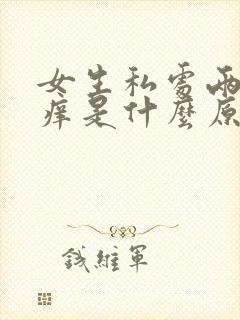 女生私處兩
癢是什麼原
鈛維軍